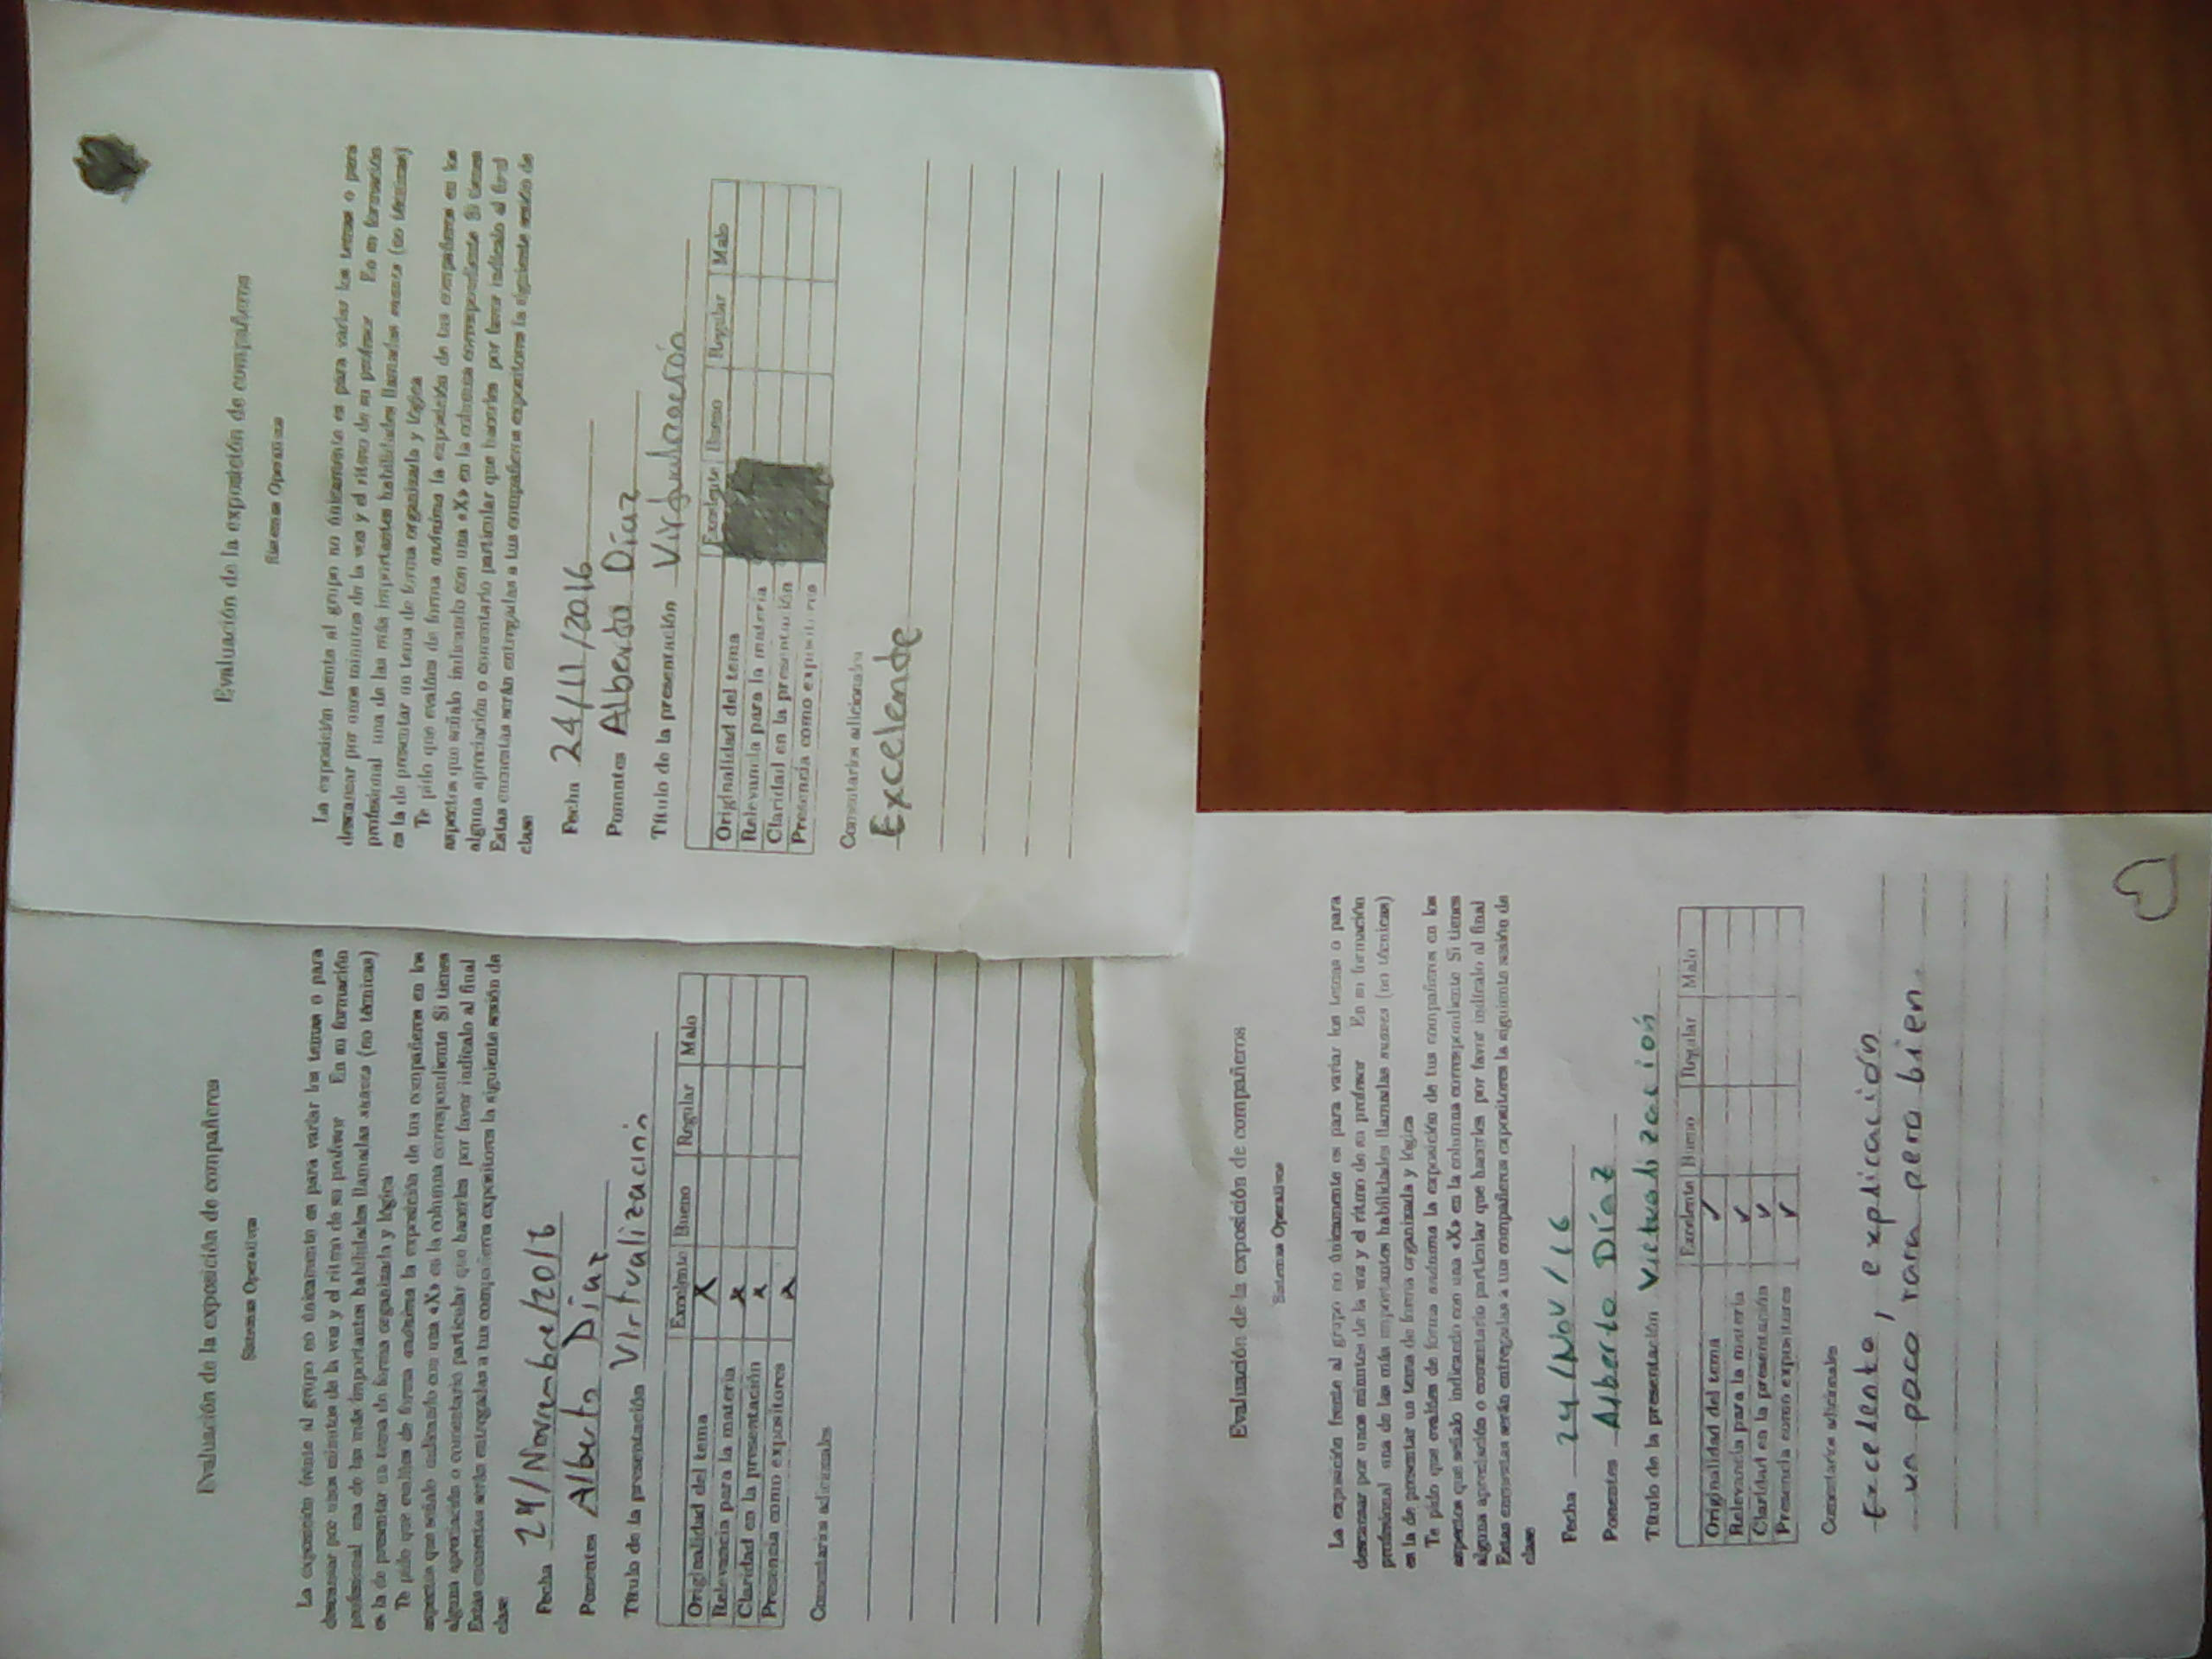 Evaluación de la exposición de compañeros
Sistemas Operativos
La exposición frente al grupo no únicamente es para variar los temas o para
descansar por unos minutos de la voz y el ritmo de su profesor. En su formación
profesional una de las más importantes habilidades llamadas suaves (no técnicas)
es la de presentar un tema de forma organizada y lógica
Te pido que evalúes de forma anónima la exposición de tus compañeros en los
aspectos que señalo indicando con una «X» en la columna correspondiente Si tienes
alguna apreciación o comentario particular que hacerles por favor indícalo al final
Estas encuestas serán entregadas a tus compañeros expositores la siguiente sesión de
clase
Fecha 24/Noviembre/2016
Ponentes Alberto Díaz
Título de la presentación Virtualización
Excelente Bueno Regular Malo
Originalidad del tema X
Relevancia para la materia x
Claridad en la presentación x
Presencia como expositores x
Comentarios adicionales
Evaluación de la exposición de compañeros
Sistemas Operativos
La exposición frente al grupo no únicamente es para variar los temas o para
descansar por unos minutos de la voz y el ritmo de su profesor. En su formación
profesional una de las más importantes habilidades llamadas suaves (no técnicas)
es la de presentar un tema de forma organizada y lógica
Te pido que evalúes de forma anónima la exposición de tus compañeros en los
aspectos que señalo indicando con una «X» en la columna correspondiente Si tienes
alguna apreciación o comentario particular que hacerles por favor indícalo al final
Estas encuestas serán entregadas a tus compañeros expositores la siguiente sesión de
clase
Fecha 24/11/2016
Ponentes Alberto Díaz
Título de la presentación
Excelente Bueno Regular Malo
Originalidad del tema
Relevancia para la materia
Claridad en la presentación
Presencia como expositores
Comentarios adicionales
Excelente
Evaluación de la exposición de compañeros
Sistemas Operativos
La exposición frente al grupo no únicamente es para variar los temas o para
descansar por unos minutos de la voz y el ritmo de su profesor. En su formación
profesional una de las más importantes habilidades llamadas suaves (no técnicas)
es la de presentar un tema de forma organizada y lógica
Te pido que evalúes de forma anónima la exposición de tus compañeros en los
aspectos que señalo indicando con una «X» en la columna correspondiente Si tienes
alguna apreciación o comentario particular que hacerles por favor indícalo al final
Estas encuestas serán entregadas a tus compañeros expositores la siguiente sesión de
clase
Fecha 24/Nov/16
Ponentes Alberto Díaz
Título de la presentación Victualización
Excelente Bueno Regular Malo
Originalidad del tema ✓
Relevancia para la materia ✓
Claridad en la presentación ✓
Presencia como expositores ✓
Comentarios adicionales
Excelente, explicación
un poco rara pero bien